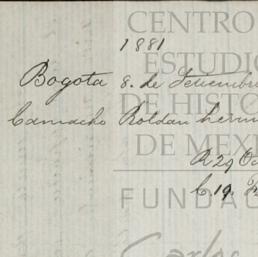 CENTRO
1881
ESTUDIO
Bogota 8. de Setiembre
DE HISTO
Camacho Roldan
DE MEXI
R 29
C. 19.
FUNDAC
Carlos